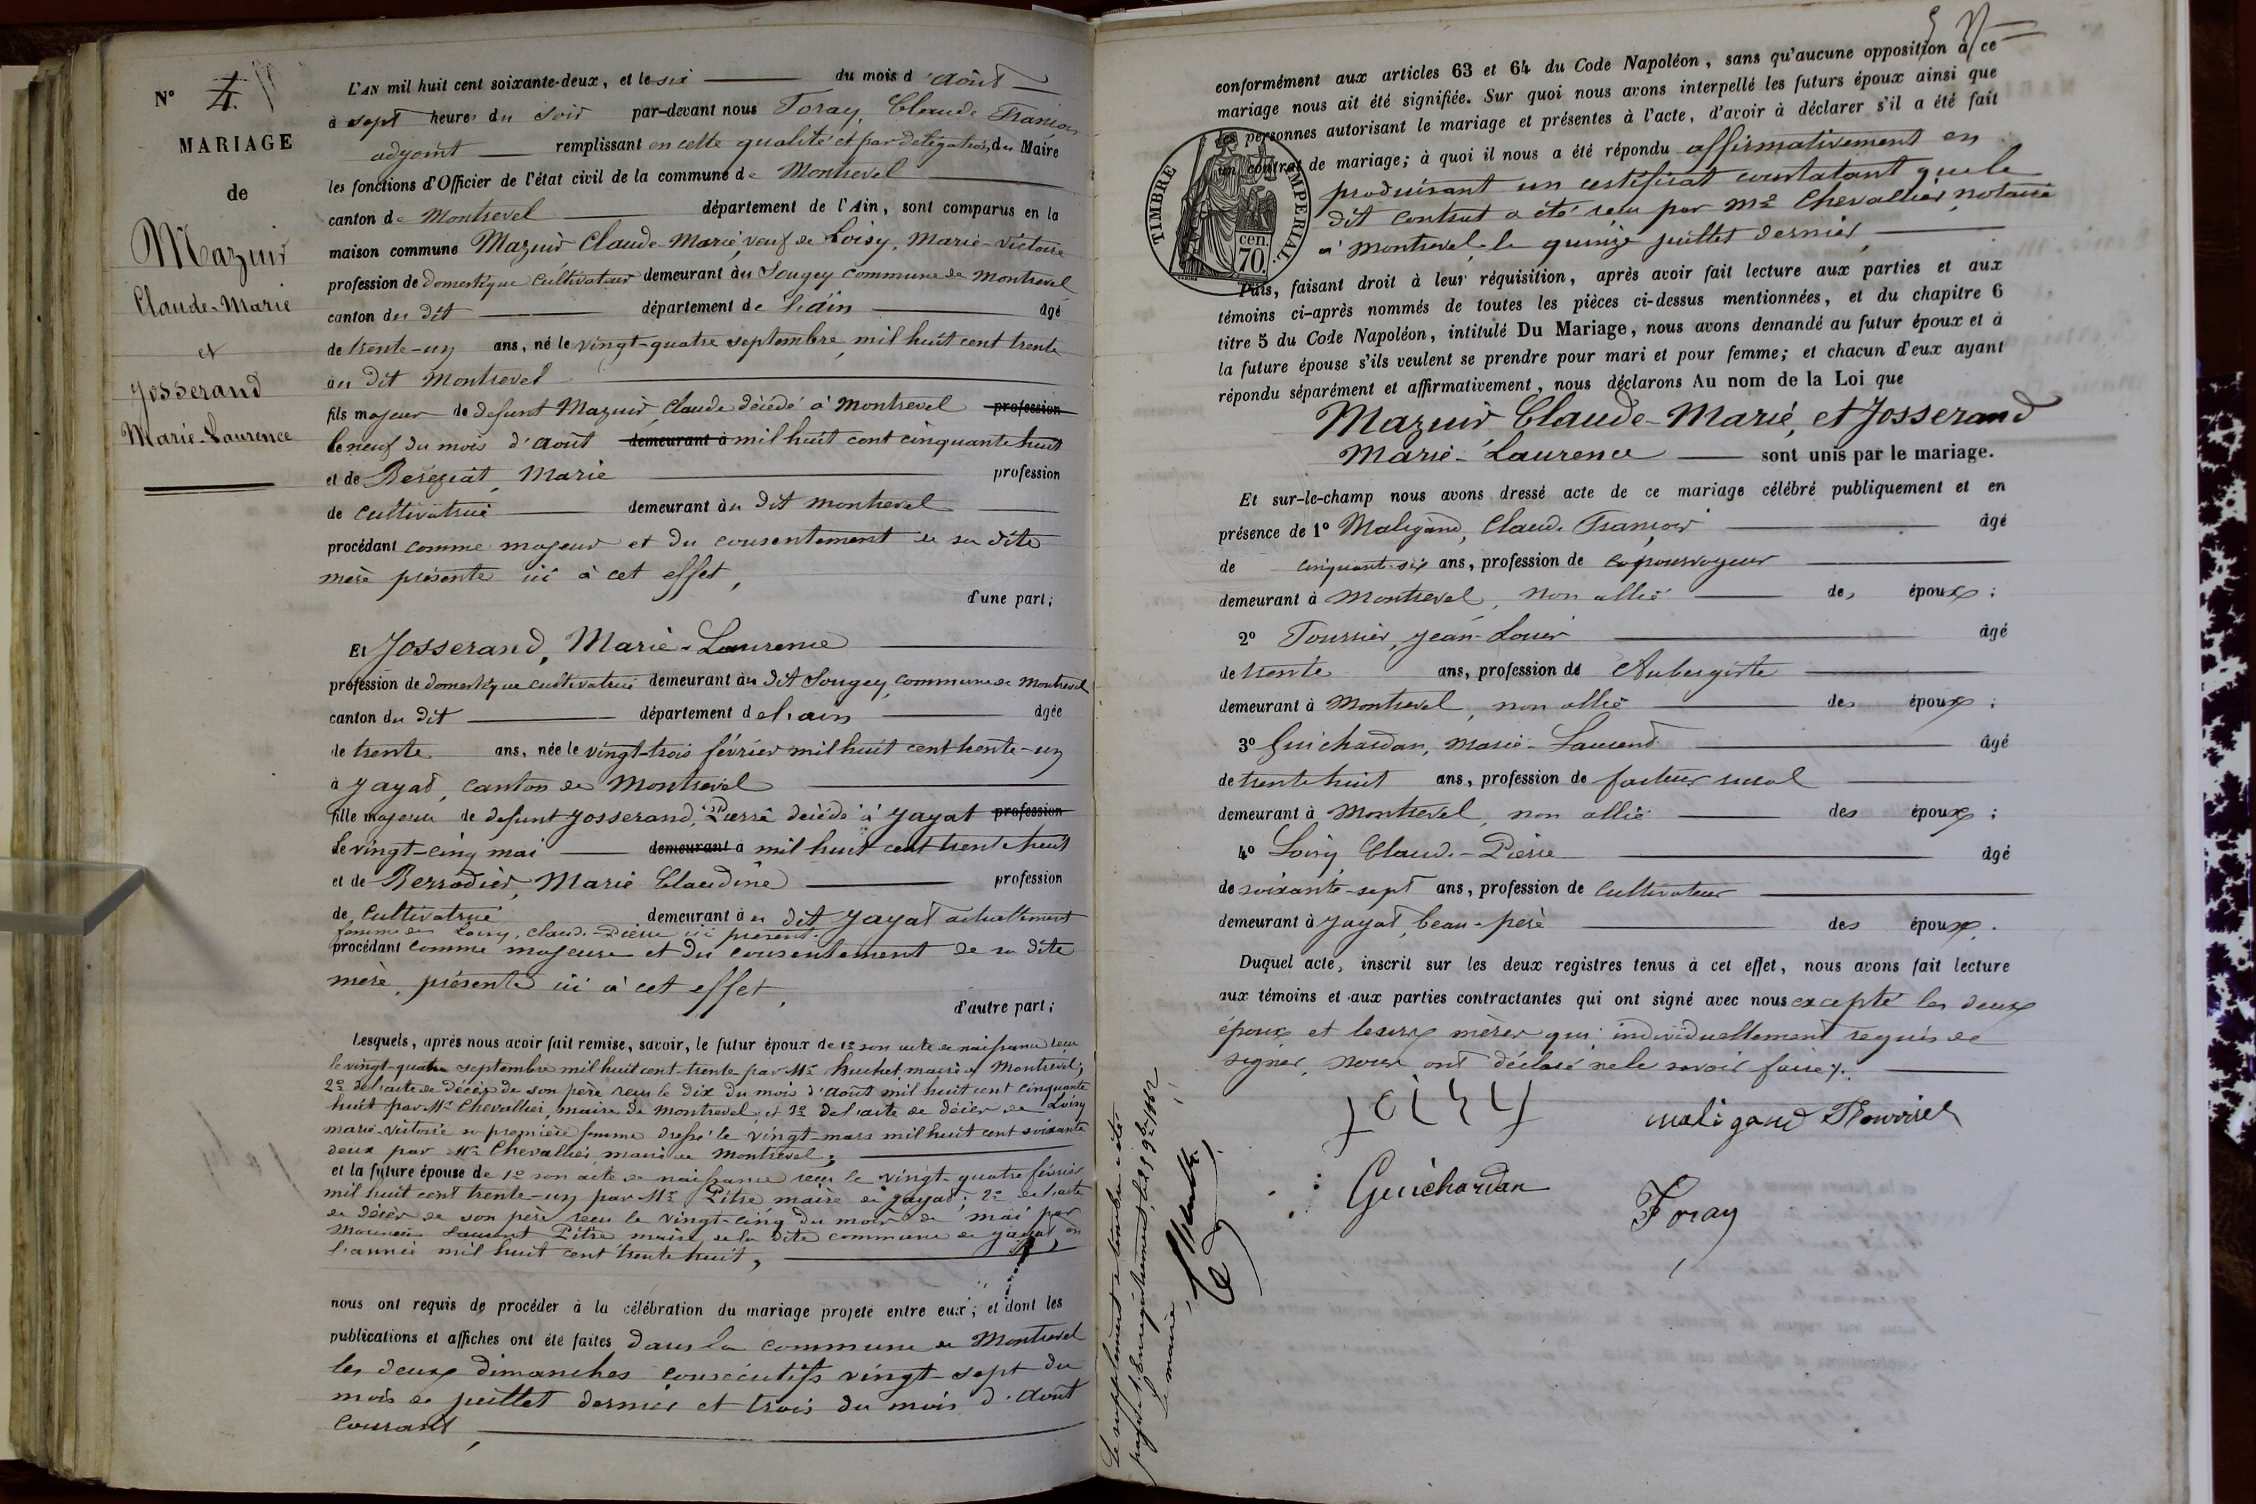 N° 4.
MARIAGE
de
Mazuir
Claude-Marie
et
Josserand
Marie-Laurence
L'AN mil huit cent soixante-deux, et le six du mois d'août
à sept heures du soir par-devant nous Foray, Claude François
adjoint remplissant en cette qualité et par délégation du Maire
les fonctions d'Officier de l'état civil de la commune de Montrevel
canton de Montrevel département de l'Ain, sont comparus en la
maison commune Mazuir Claude-Marie, veuf de Loisy, Marie-Victoire
profession de domestique cultivateur demeurant au Sougey commune de Montrevel
canton du dit département de l'ain âgé
de trente-un ans, né le vingt-quatre septembre mil huit cent trente
au dit Montrevel
fils majeur de defunt Mazuir, Claude décédé à Montrevel profession
le neuf du mois d'août demeurant à mil huit cent cinquante huit
et de Bereziat, Marie profession
de cultivatrice demeurant au dit Montrevel
procédant comme majeur et du consentement de sa dite
mère présente ici à cet effet,
d'une part;
Et Josserand, Marie-Laurence
profession de domestique cultivatrice demeurant au dit Sougey, commune de Montrevel
canton du dit département de l'ain âgée
de trente ans, née le vingt-trois février mil huit cent trente-un
à Jayat, canton de Montrevel
fille majeure de defunt Josserand, Pierre décédé à Jayat profession
le vingt-cinq mai demeurant à mil huit cent trente huit
et de Berrodier, Marie Claudine profession
de Cultivatrice demeurant à dit Jayat actuellement
femme de Loisy, Claude-Pierre ici présent.
procédant comme majeure et du consentement de sa dite
mère, présente ici à cet effet,
d'autre part;
Lesquels, après nous avoir fait remise, savoir, le futur époux de 1° son acte de naissance reçu
le vingt-quatre septembre mil huit cent trente par Mr. Huchet, maire de Montrevel;
2° de l'acte de décès de son père reçu le dix du mois d'août mil huit cent cinquante
huit par Mr. Chevallier, maire de Montrevel, et 3° de l'acte de décès de Loisy
marie-victoire sa première femme dressé le vingt mars mil huit cent soixante
deux par Mr. Chevallier maire de Montrevel;
et la future épouse de 1° son acte de naissance reçu le vingt-quatre février
mil huit cent trente-un par Mr. Pitre maire de Jayat; 2° de l'acte
de décès de son père reçu le vingt-cinq du mois de mai par
Monsieur Laurent Pitre maire de la dite commune de Jayat, en
l'année mil huit cent trente huit,
nous ont requis de procéder à la célébration du mariage projeté entre eux; et dont les
publications et affiches ont été faites dans la commune de Montrevel
les deux dimanches consécutifs vingt-sept du
mois de juillet dernier et trois du mois d'août
courant,
conformément aux articles 63 et 64 du Code Napoléon, sans qu'aucune opposition à ce
mariage nous ait été signifiée. Sur quoi nous avons interpellé les futurs époux ainsi que
les personnes autorisant le mariage et présentes à l'acte, d'avoir à déclarer s'il a été fait
un contrat de mariage; à quoi il nous a été répondu affirmativement en
produisant un certificat constatant que le
dit contrat a été reçu par Me Chevallier, notaire
à Montrevel, le quinze juillet dernier,
TIMBRE IMPERIAL.
cen.
70
Puis, faisant droit à leur réquisition, après avoir fait lecture aux parties et aux
témoins ci-après nommés de toutes les pièces ci-dessus mentionnées, et du chapitre 6
titre 5 du Code Napoléon, intitulé Du Mariage, nous avons demandé au futur époux et à
la future épouse s'ils veulent se prendre pour mari et pour femme; et chacun d'eux ayant
répondu séparément et affirmativement, nous déclarons Au nom de la Loi que
Mazuir Claude-Marie, et Josserand
Marie-Laurence sont unis par le mariage.
Et sur-le-champ nous avons dressé acte de ce mariage célébré publiquement et en
présence de 1° Maligand, Claude François âgé
de cinquante-six ans, profession de
demeurant à Montrevel, non allié des époux;
2° Tournier, Jean-Louis âgé
de trente ans, profession de Aubergiste
demeurant à Montrevel, non allié des époux;
3° Guichardan, Marie-Laurent âgé
de trente huit ans, profession de facteur rural
demeurant à Montrevel, non allié des époux;
4° Loisy Claude-Pierre âgé
de soixante-sept ans, profession de Cultivateur
demeurant à Jayat, beau-père des époux.
Duquel acte, inscrit sur les deux registres tenus à cet effet, nous avons fait lecture
aux témoins et aux parties contractantes qui ont signé avec nous excepté les deux
époux et leurs mères qui individuellement requis de
signer, nous ont déclaré ne le savoir faire.
Loisy
maligand Tournier
Guichardan
Foray
Le supplément de timbre a été
Le maire,